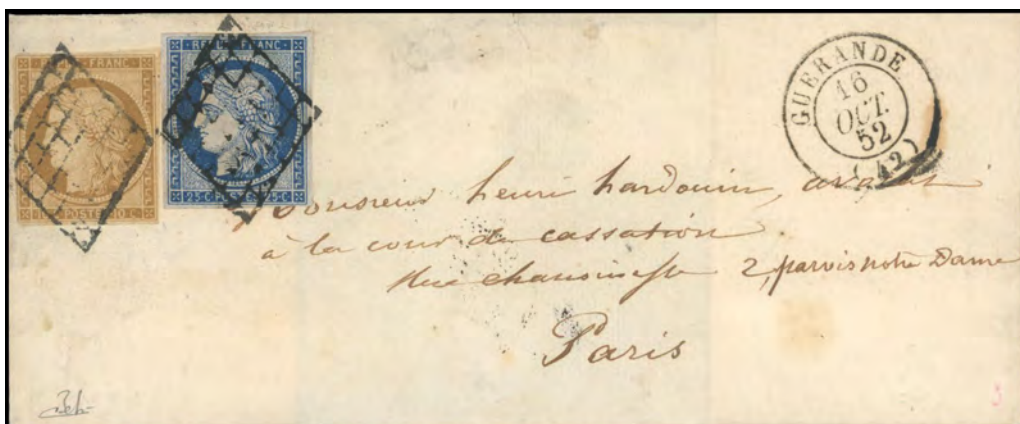 REPUB. FRANC.
REPUB. FRANC.
10 C. POSTES 10 C.
25 C. POSTES 25 C.
GUERANDE
16
OCT.
52
(42)
Monsieur henri hardouin, avocat
à la cour de cassation
Rue chanoinesse 2, parvis notre Dame
Paris